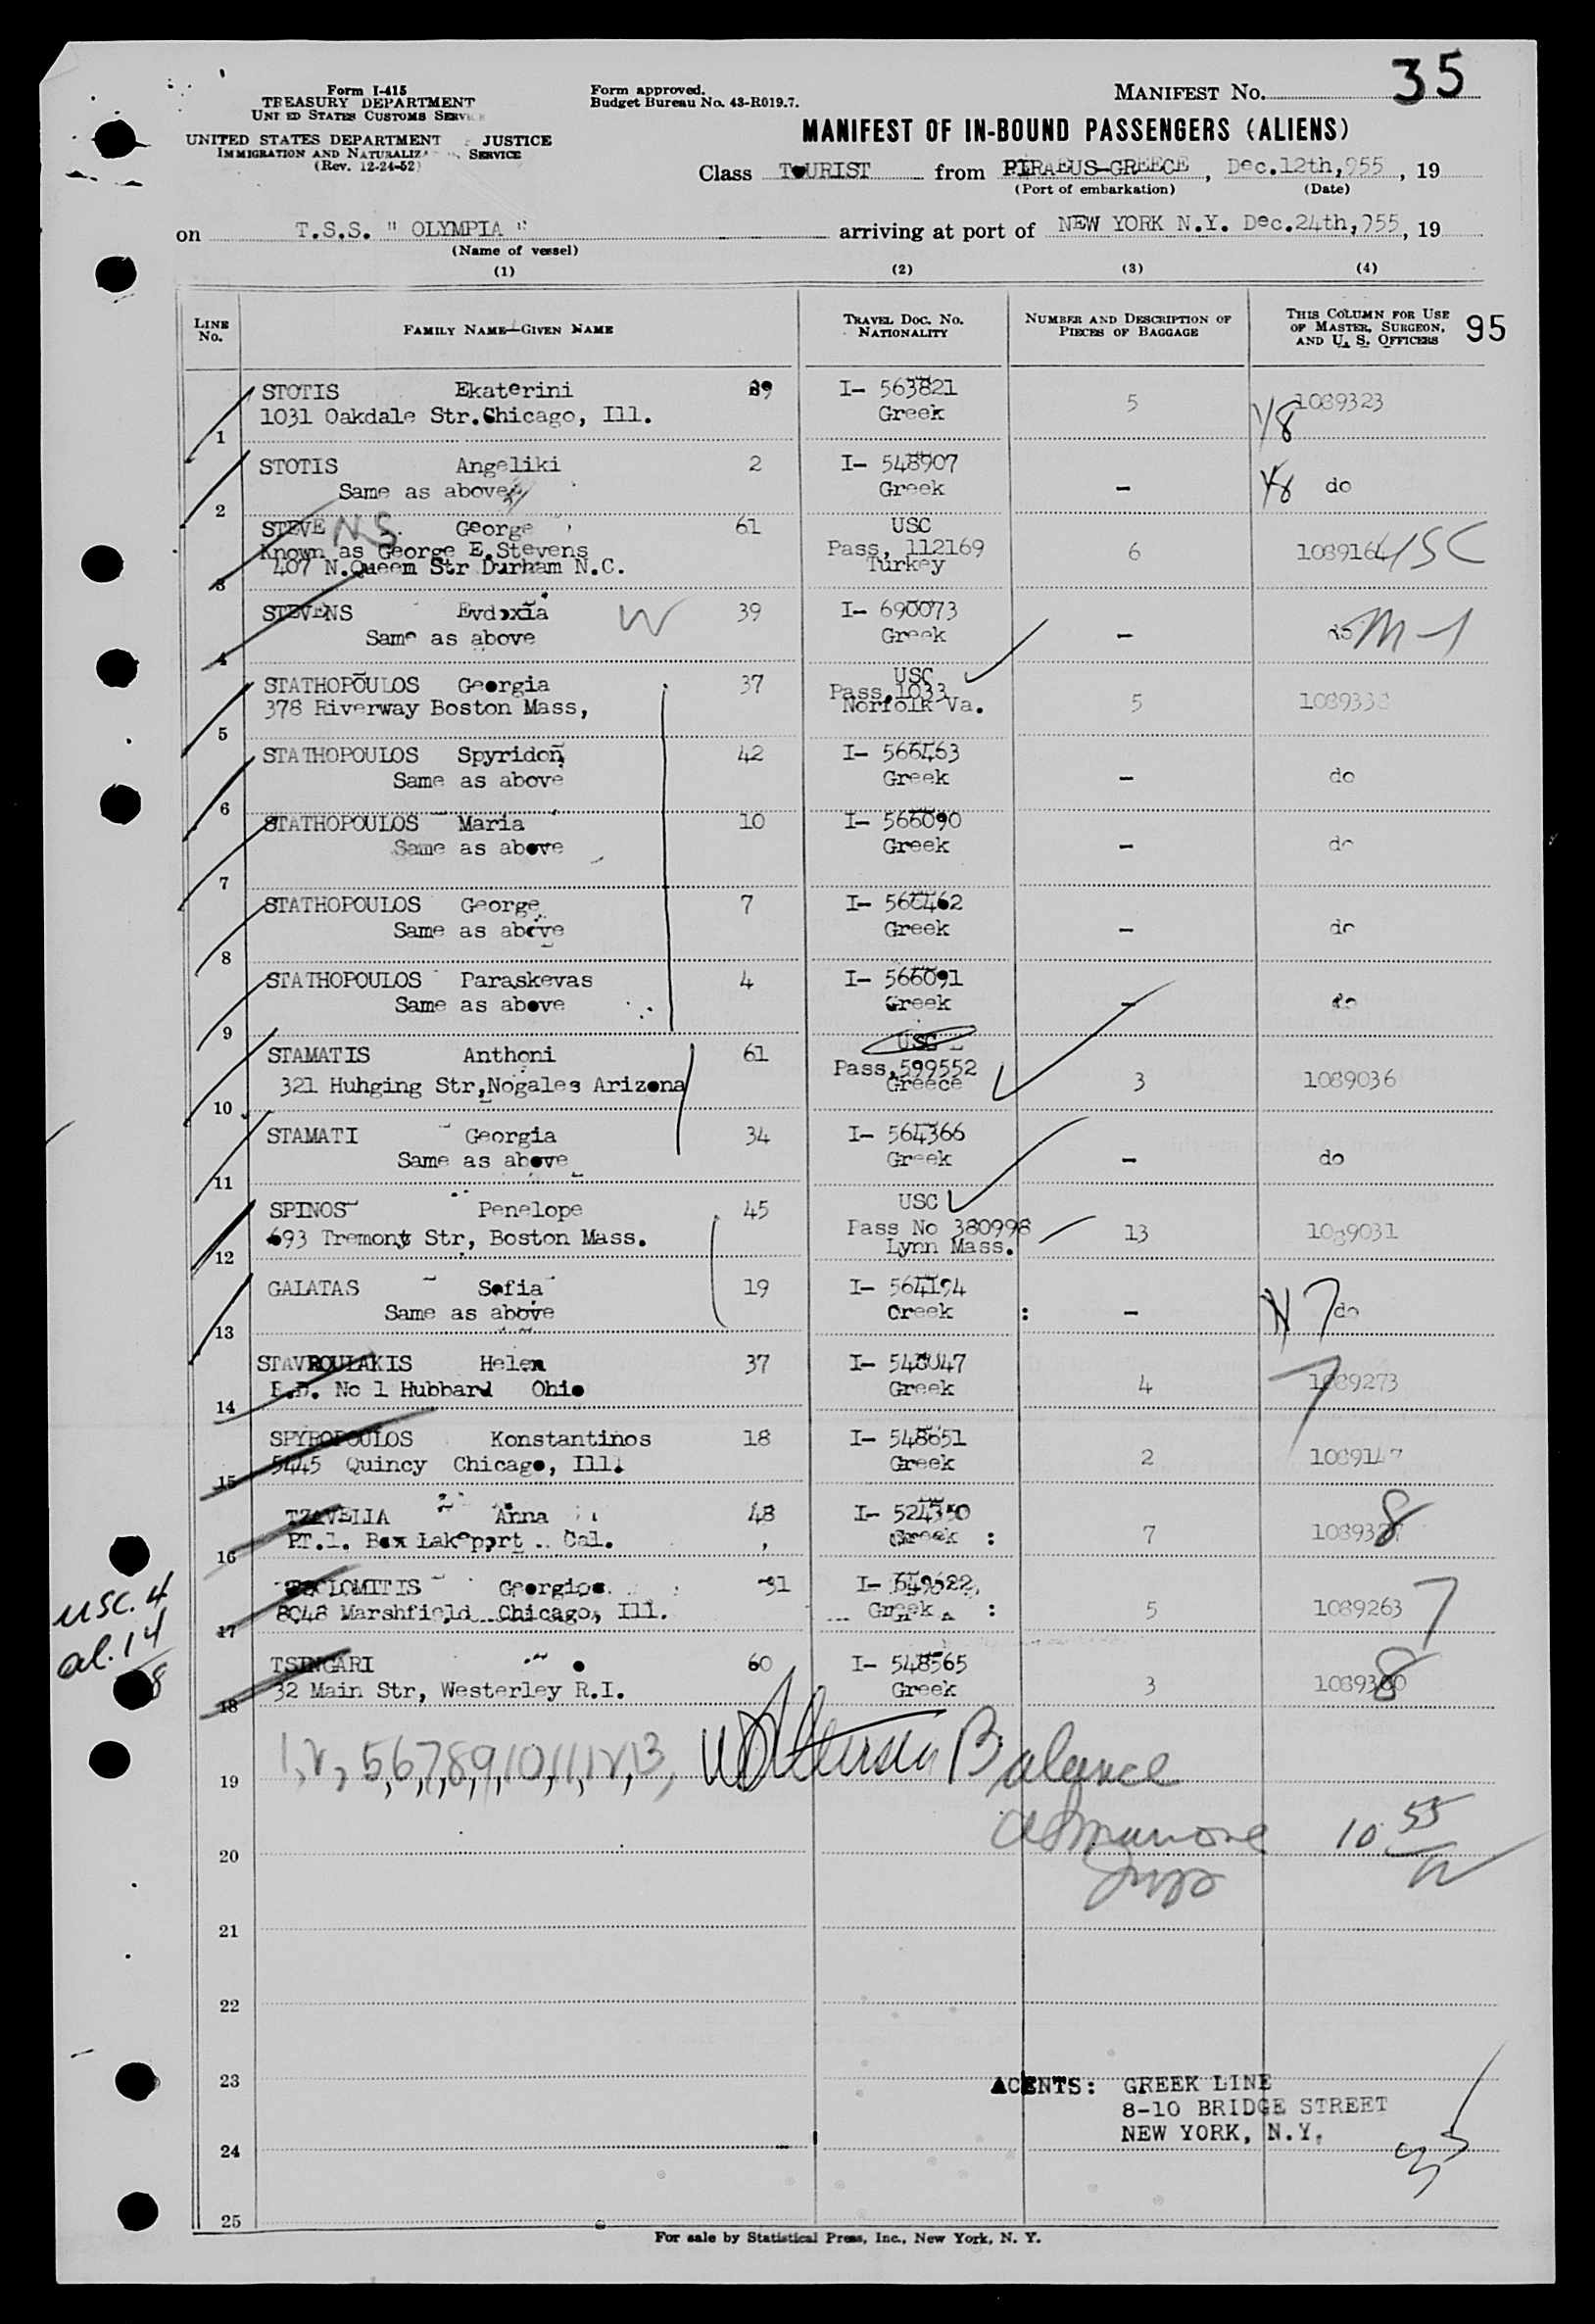 35
Form I-415
TREASURY DEPARTMENT
UNITED STATES CUSTOMS SERVICE
UNITED STATES DEPARTMENT JUSTICE
IMMIGRATION AND NATURALIZA SERVICE
(Rev. 12-24-52)
Form approved.
Budget Bureau No. 43-R019.7.
MANIFEST No.
MANIFEST OF IN-BOUND PASSENGERS (ALIENS)
Class TOURIST from PIRAEUS-GREECE, Dec.12th,955, 19
(Port of embarkation) (Date)
on T.S.S. " OLYMPIA " arriving at port of NEW YORK N.Y. Dec.24th,955, 19
(Name of vessel)
(1) (2) (3) (4)
LINE No. FAMILY NAME—GIVEN NAME TRAVEL DOC. No. NATIONALITY NUMBER AND DESCRIPTION OF PIECES OF BAGGAGE THIS COLUMN FOR USE OF MASTER, SURGEON, AND U. S. OFFICERS 95
STOTIS Ekaterini 39 I- 563821 5 1089323
1 1031 Oakdale Str.Chicago, Ill. Greek 48
STOTIS Angeliki 2 I- 548907
2 Same as above Greek - 48 do
STEVE NS George 61 USC
Known as George E.Stevens Pass, 112169 6 1089164 USC
3 407 N.Queem Str Durham N.C. Turkey
STEVENS Evdoxia W 39 I- 690073
4 Same as above Greek - do M-1
STATHOPOULOS Georgia 37 USC
378 Riverway Boston Mass, Pass,1033 5 108933
5 Norfolk Va.
STATHOPOULOS Spyridon 42 I- 566463
6 Same as above Greek - do
STATHOPOULOS Maria 10 I- 566090
7 Same as above Greek - do
STATHOPOULOS George 7 I- 566462
8 Same as above Greek - do
STATHOPOULOS Paraskevas 4 I- 566091
9 Same as above Greek - do
STAMATIS Anthoni 61 USC
Pass,599552
10 321 Huhging Str,Nogales Arizona Greece 3 1089036
STAMATI Georgia 34 I- 564366
11 Same as above Greek - do
SPINOS Penelope 45 USC
693 Tremont Str, Boston Mass. Pass No 380998 13 1089031
12 Lynn Mass.
GALATAS Sofia 19 I- 564194
13 Same as above Greek : - 7 do
STAVROULAKIS Helen 37 I- 548047
14 No 1 Hubbard Ohio Greek 4 1089273 7
SPYROPOULOS Konstantinos 18 I- 548651
15 5445 Quincy Chicago, Ill. Greek 2 1089147
TZAVELIA Anna 48 I- 524350
16 RT.1. Box Lakeport Cal. Greek : 7 10893 8
Georgios 31 I- 649622,
17 8048 Marshfield Chicago, Ill. Greek : 5 1089263 7
TSINGARI 60 I- 548565
18 32 Main Str, Westerley R.I. Greek 3 1089300 8
usc. 4
al. 14
18
19 1,2, 5,6,7,8,9,10,11,12,13, Balance
20 10 55
21
22
23
AGENTS: GREEK LINE
8-10 BRIDGE STREET
NEW YORK, N.Y.
24
25
For sale by Statistical Press, Inc., New York, N. Y.